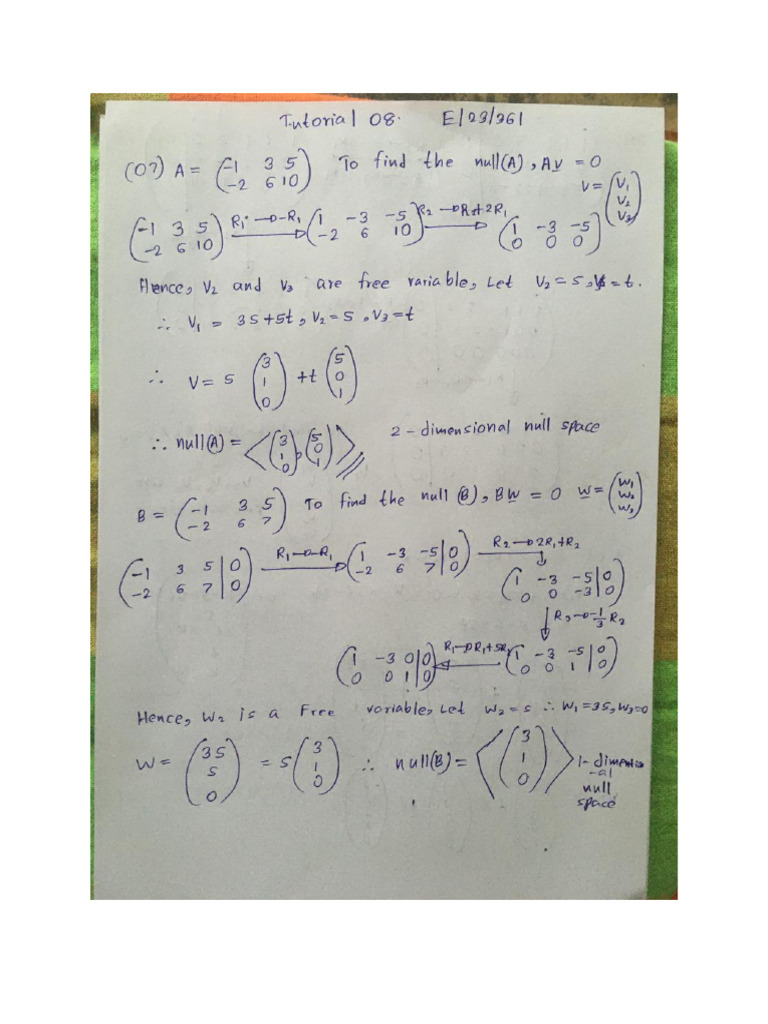 Tutorial 08. E/23/361
(07) A = (-1 3 5 / -2 6 10) To find the null(A), Av = 0
v = (v1 / v2 / v3)
(-1 3 5 / -2 6 10) R1→-R1 (1 -3 -5 / -2 6 10) R2→R2+2R1 (1 -3 -5 / 0 0 0)
Hence, v2 and v3 are free variable, Let v2 = s, v3 = t.
∴ v1 = 3s+5t, v2 = s, v3 = t
∴ v = s (3 / 1 / 0) + t (5 / 0 / 1)
∴ null(A) = < (3 / 1 / 0), (5 / 0 / 1) > 2-dimensional null space
B = (-1 3 5 / -2 6 7) To find the null(B), BW = 0 W = (w1 / w2 / w3)
(-1 3 5 | 0 / -2 6 7 | 0) R1→-R1 (1 -3 -5 | 0 / -2 6 7 | 0) R2→2R1+R2
(1 -3 -5 | 0 / 0 0 -3 | 0)
R2→-1/3 R2
(1 -3 0 | 0 / 0 0 1 | 0) R1→R1+5R2 (1 -3 -5 | 0 / 0 0 1 | 0)
Hence, w2 is a free variable, Let w2 = s ∴ w1 = 3s, w3 = 0
W = (3s / s / 0) = s (3 / 1 / 0) ∴ null(B) = < (3 / 1 / 0) > 1-dimension
-al
null
space